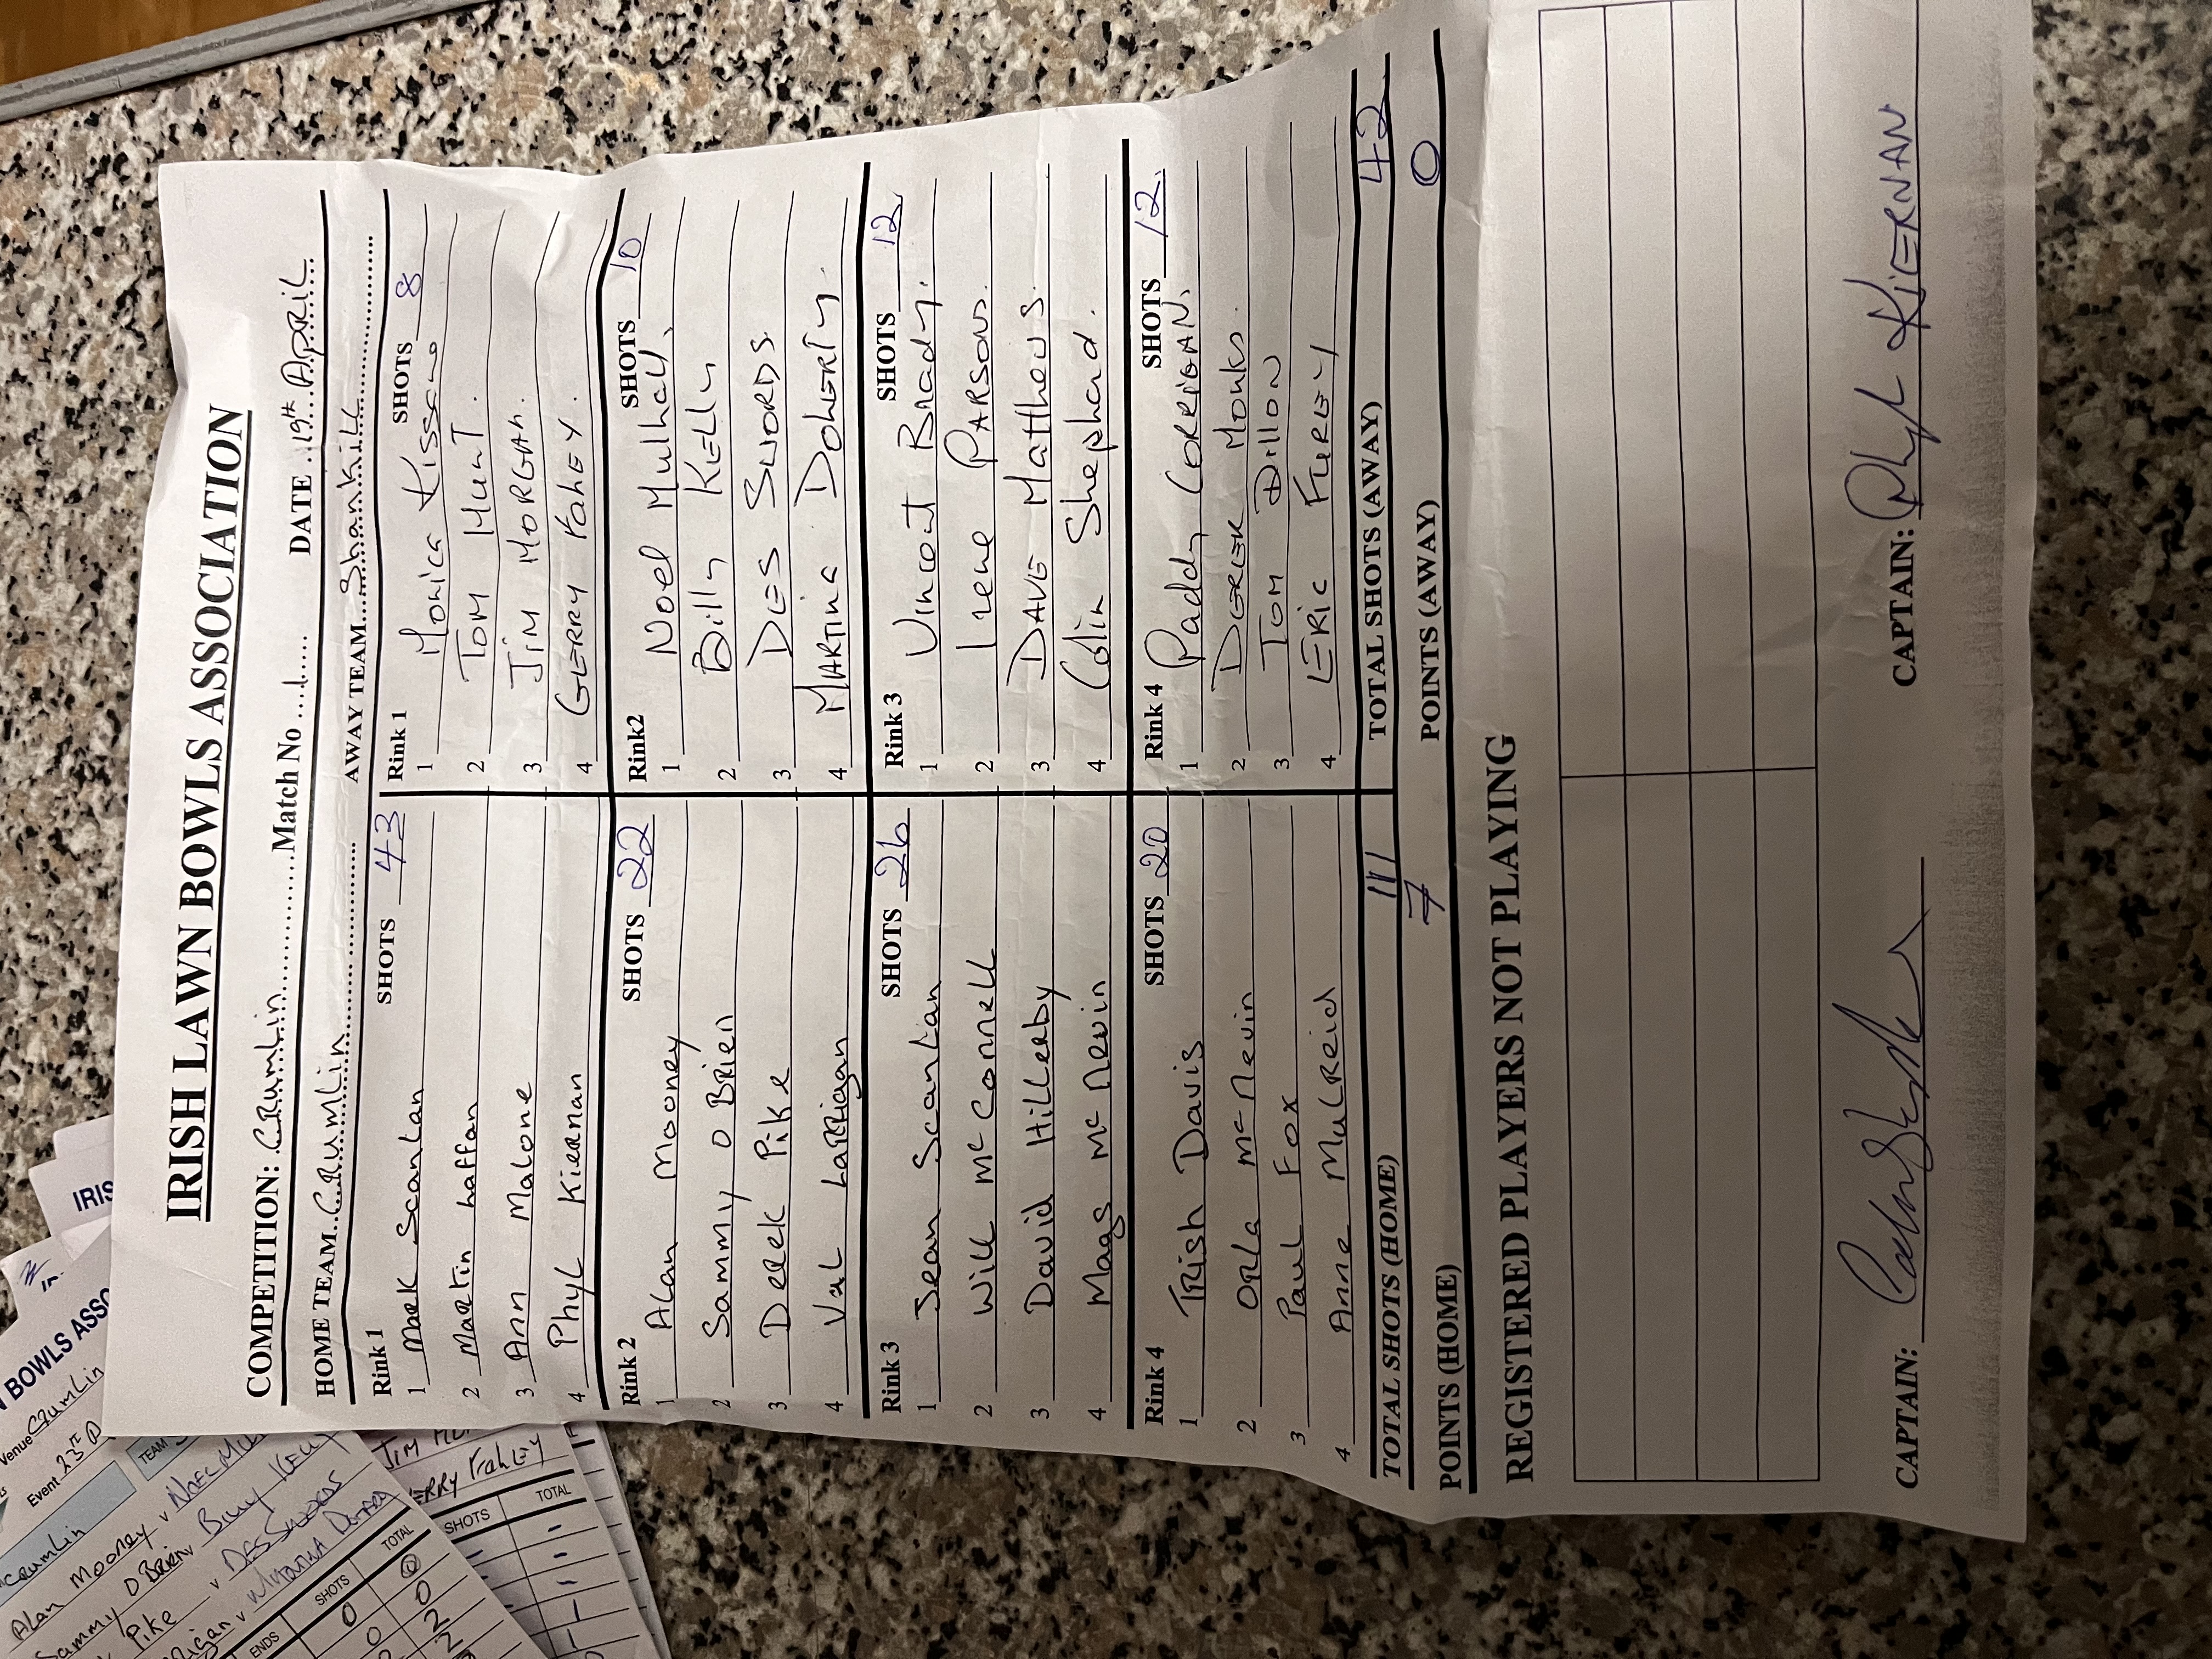 IRISH LAWN BOWLS ASSOCIATION
COMPETITION: CRumLin Match No 1 DATE 19th APRIL
HOME TEAM CRumLin AWAY TEAM ShankiLL
Rink 1 SHOTS 43 Rink 1 SHOTS 8
1 Mark Scanlan 1 Monica Kissane
2 Martin Laffan 2 TOM HunT.
3 Ann Malone 3 JiM MORGAN.
4 PhyL Kiernan 4 GERRY FahEY.
Rink 2 SHOTS 22 Rink2 SHOTS 10
1 Alan Mooney 1 Noel Mulhall.
2 Sammy O BRien 2 Billy KElly
3 Derek Pike 3 DES SWORDS
4 VaL LaRRigan 4 MARTINa DOhERTy.
Rink 3 SHOTS 26 Rink 3 SHOTS 12
1 Sean Scanlan 1 Vincent Brady.
2 WiLL McConneLL 2 Irene PARSONS.
3 David HiLLeRby 3 DAVE MattheWS.
4 Mags McNevin 4 Colin Shephard.
Rink 4 SHOTS 20 Rink 4 SHOTS 12.
1 TRish Davis 1 Paddy CORRIGAN.
2 ORLa McNevin 2 DEREK Monks.
3 Paul Fox 3 TOM DillON
4 Anne MuLReid 4 ERic FuRLEY
TOTAL SHOTS (HOME) 111 TOTAL SHOTS (AWAY) 42
POINTS (HOME) 7 POINTS (AWAY) 0
REGISTERED PLAYERS NOT PLAYING
CAPTAIN: CAPTAIN: Phyl KiERNAN
IRIS
N BOWLS ASSO
Venue CRumLin
Event 23rd A
CRumLin TEAM
Alan Mooney v NOEL MU
Sammy O BRien v Billy KELLY
Pike v DES SWORDS
JIM
ERRY FahLEY
ENDS SHOTS TOTAL
0 0
0 2
2
SHOTS TOTAL